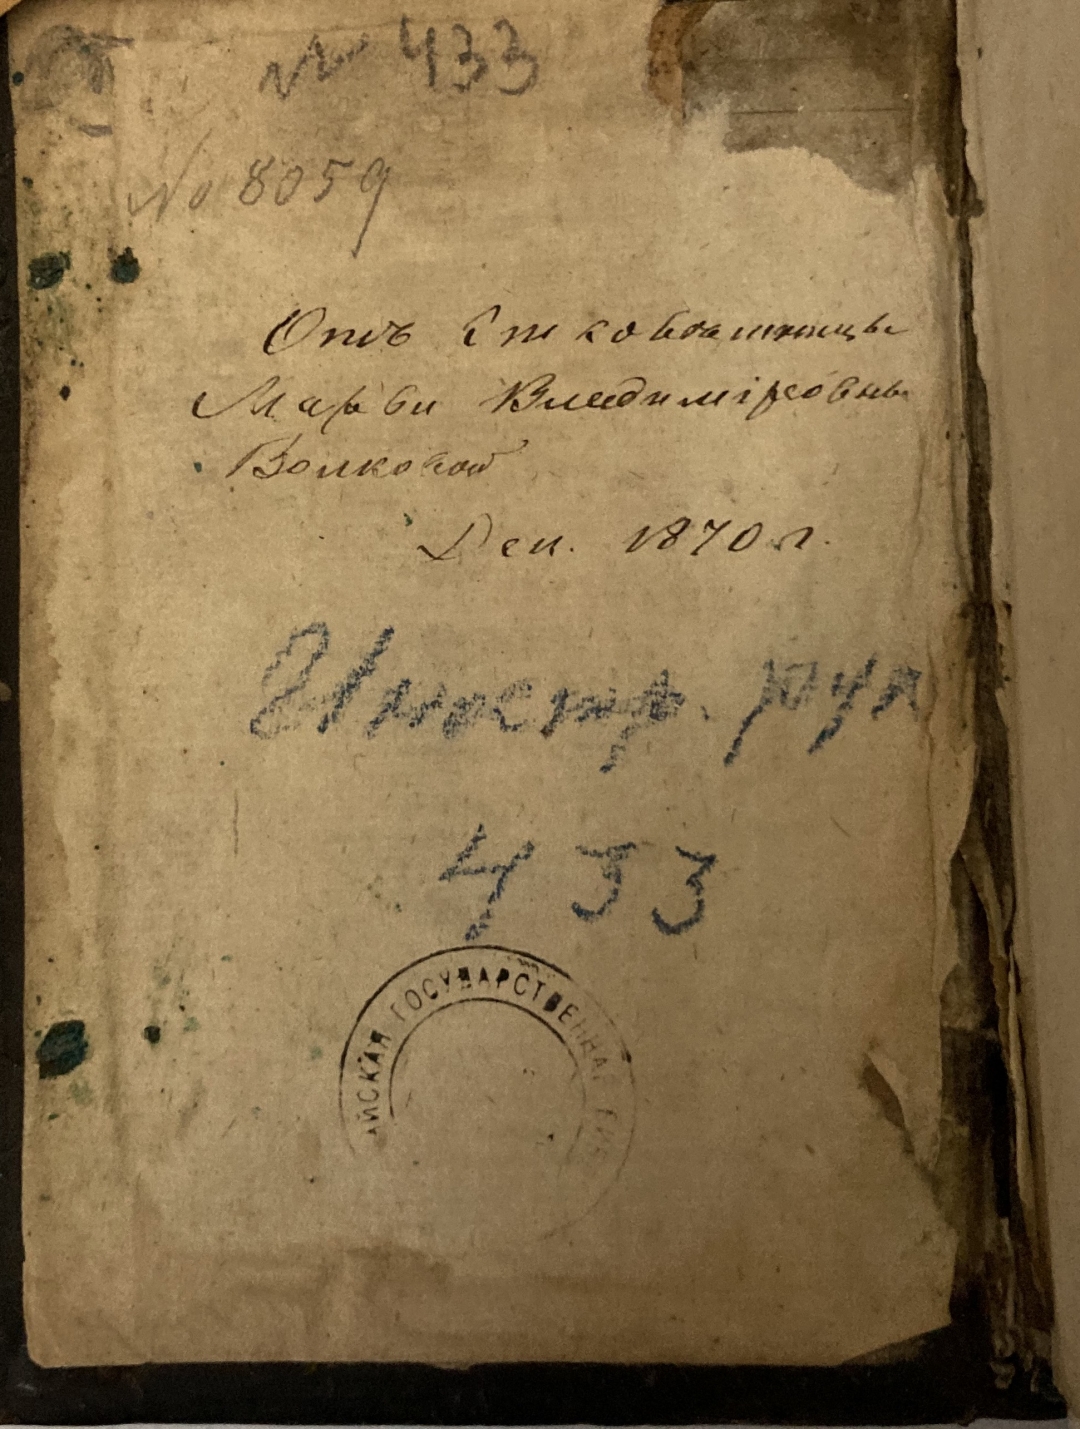 № 433
№ 8059
Отъ
Марьи Владиміровны
Волковой
Дек. 1870 г.
Иностр. рук
433
ЙСКАЯ ГОСУДАРСТВЕННАЯ